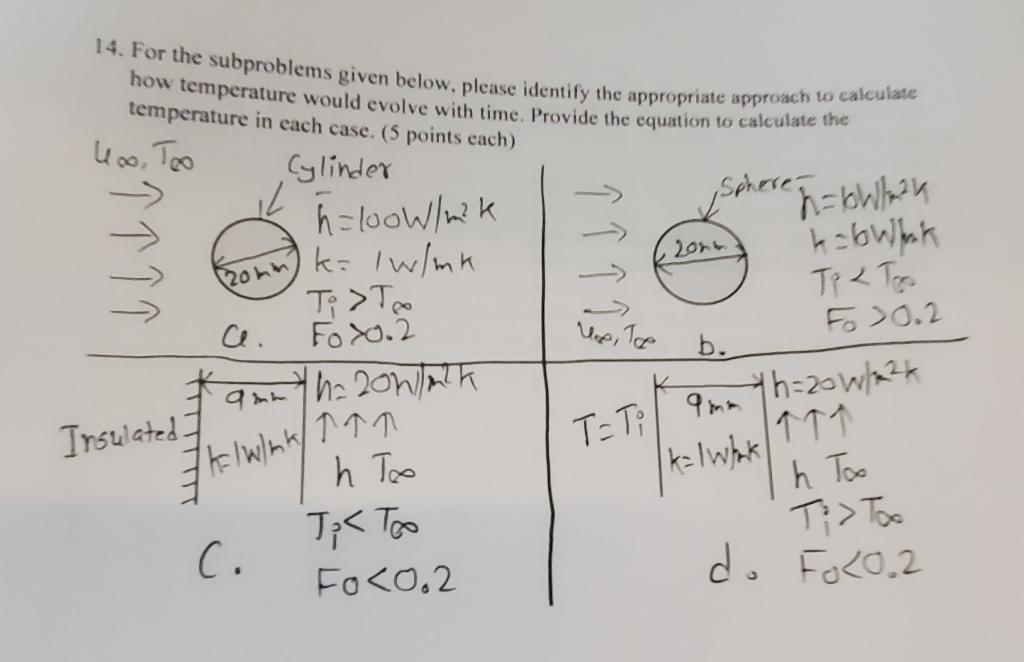 14. For the subproblems given below, please identify the appropriate approach to calculate
how temperature would evolve with time. Provide the equation to calculate the
temperature in each case. (5 points each)
U∞, T∞
Cylinder
h̄=100W/m²K
20mm
k= 1W/mK
Ti>T∞
a.
Fo>0.2
Sphere
h̄=6W/m²K
20mm
k=6W/mK
Ti<T∞
Fo>0.2
U∞, T∞
b.
9mm
h=20W/m²K
Insulated
k=1W/mK
↑↑↑
h T∞
Ti<T∞
C.
Fo<0.2
T=Ti
9mm
h=20W/m²K
k=1W/mK
↑↑↑
h T∞
Ti>T∞
d.
Fo<0.2